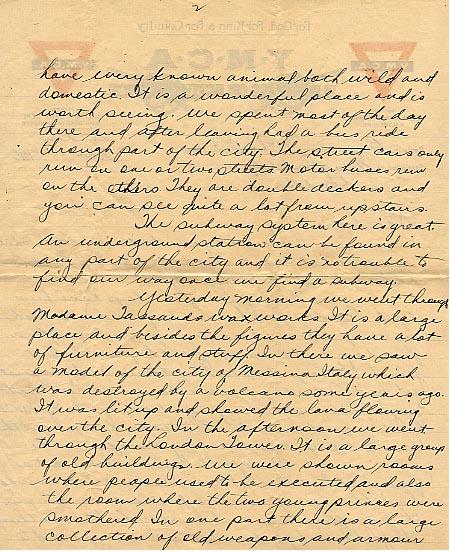 2
For God, For King & For Country
Y.M.C.A
Y.M.C.A
Y.M.C.A
have every known animal both wild and
domestic. It is a wonderful place and is
worth seeing. We spent most of the day
there and after leaving had a bus ride
through part of the city. The street cars only
run on one or two streets Motor buses run
on the others They are double deckers and
you can see quite a lot from upstairs.
The subway system here is great
An underground station can be found in
any part of the city and it is no trouble to
find our way once we find a subway.
Yesterday morning we went through
Madame Tassauds waxworks It is a large
place and besides the figures they have a lot
of furniture and stuff. In there we saw
a model of the city of Messina Italy which
was destroyed by a volcano some years ago.
It was lit up and showed the lava flowing
over the city. In the afternoon we went
through the London Tower. It is a large group
of old buildings. We were shown rooms
where people used to be executed and also
the room where the two young princes were
smothered. In one part there is a large
collection of old weapons and armour